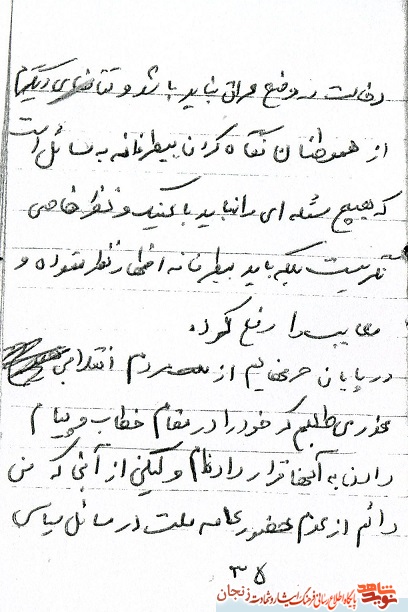 دخالت در وضع عراق نباید باشد و تقاضای دیگرم
از هموطنان نگاه کردن بیطرفانه به مسائل است
که هیچ مسئله ای را نباید با کینه و نظر خاصی
نگریست بلکه باید بیطرفانه اظهار نظر نموده و
معایب را رفع کرد.
در پایان حرفهایم از مردم انقلابی
عذر می طلبم که خود را در مقام خطاب و پیام
دادن به آنها قرار داده‌ام ولیکن از آنجا که من
دائم از عدم حضور عامه ملت در مسائل سیاسی
۳۵
نوید شاهد
پایگاه اطلاع رسانی فرهنگ ایثار و شهادت زنجان